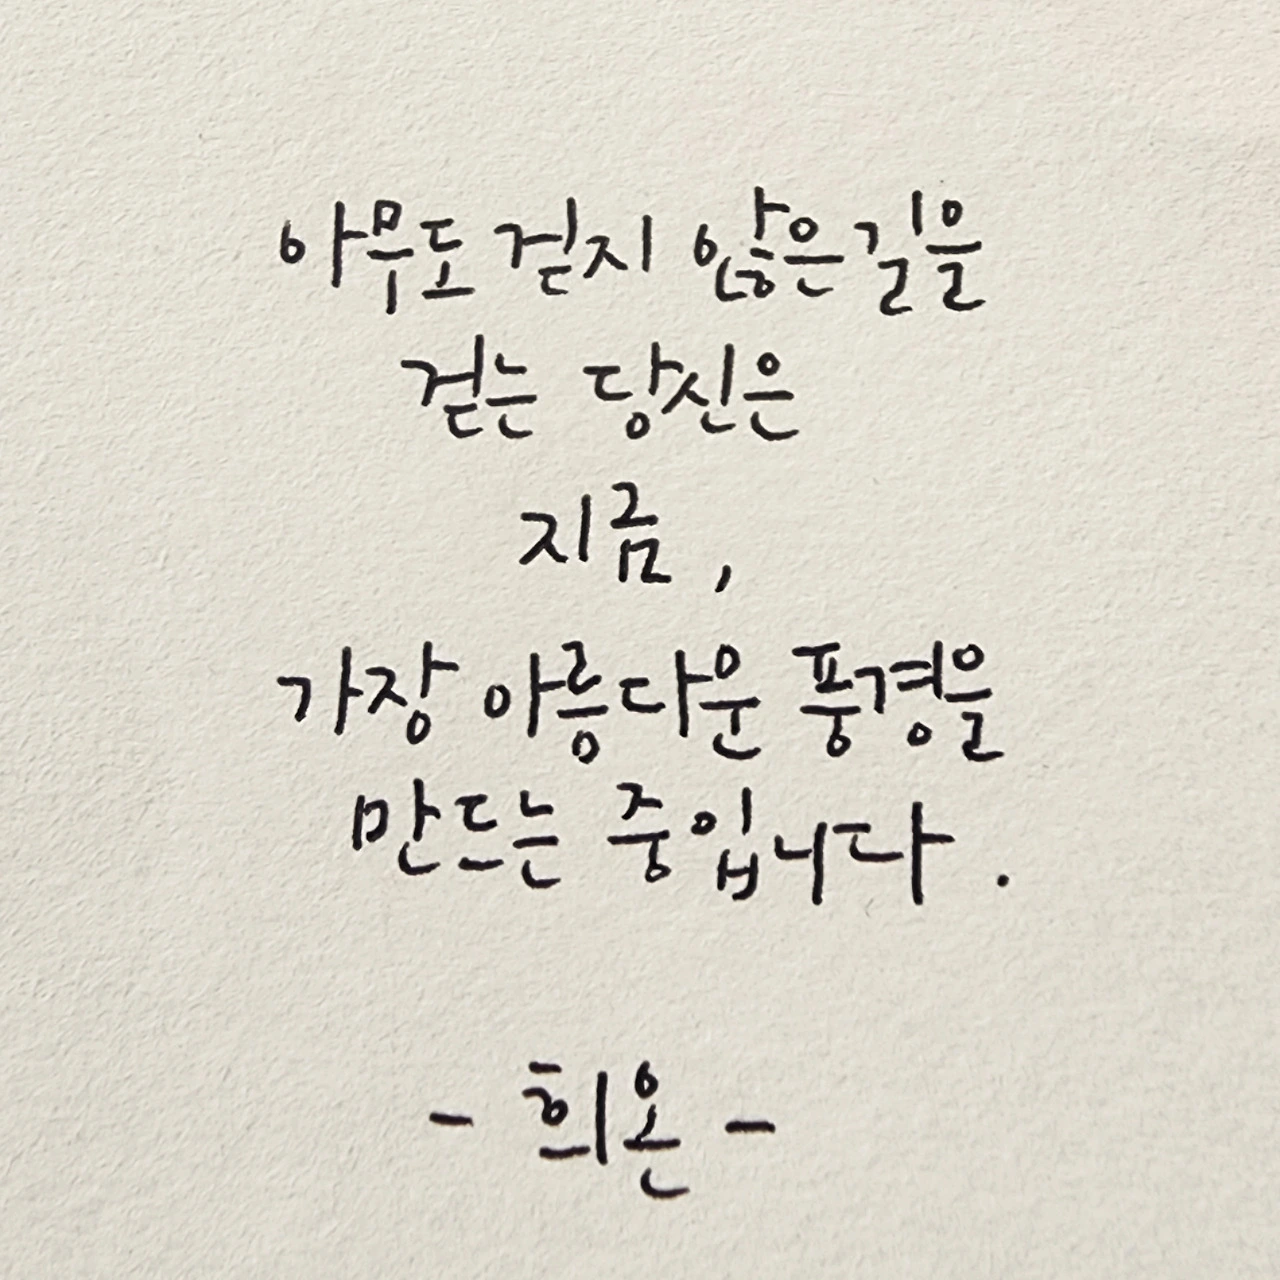 아무도 걷지 않은 길을
걷는 당신은
지금,
가장 아름다운 풍경을
만드는 중입니다.
- 희온 -